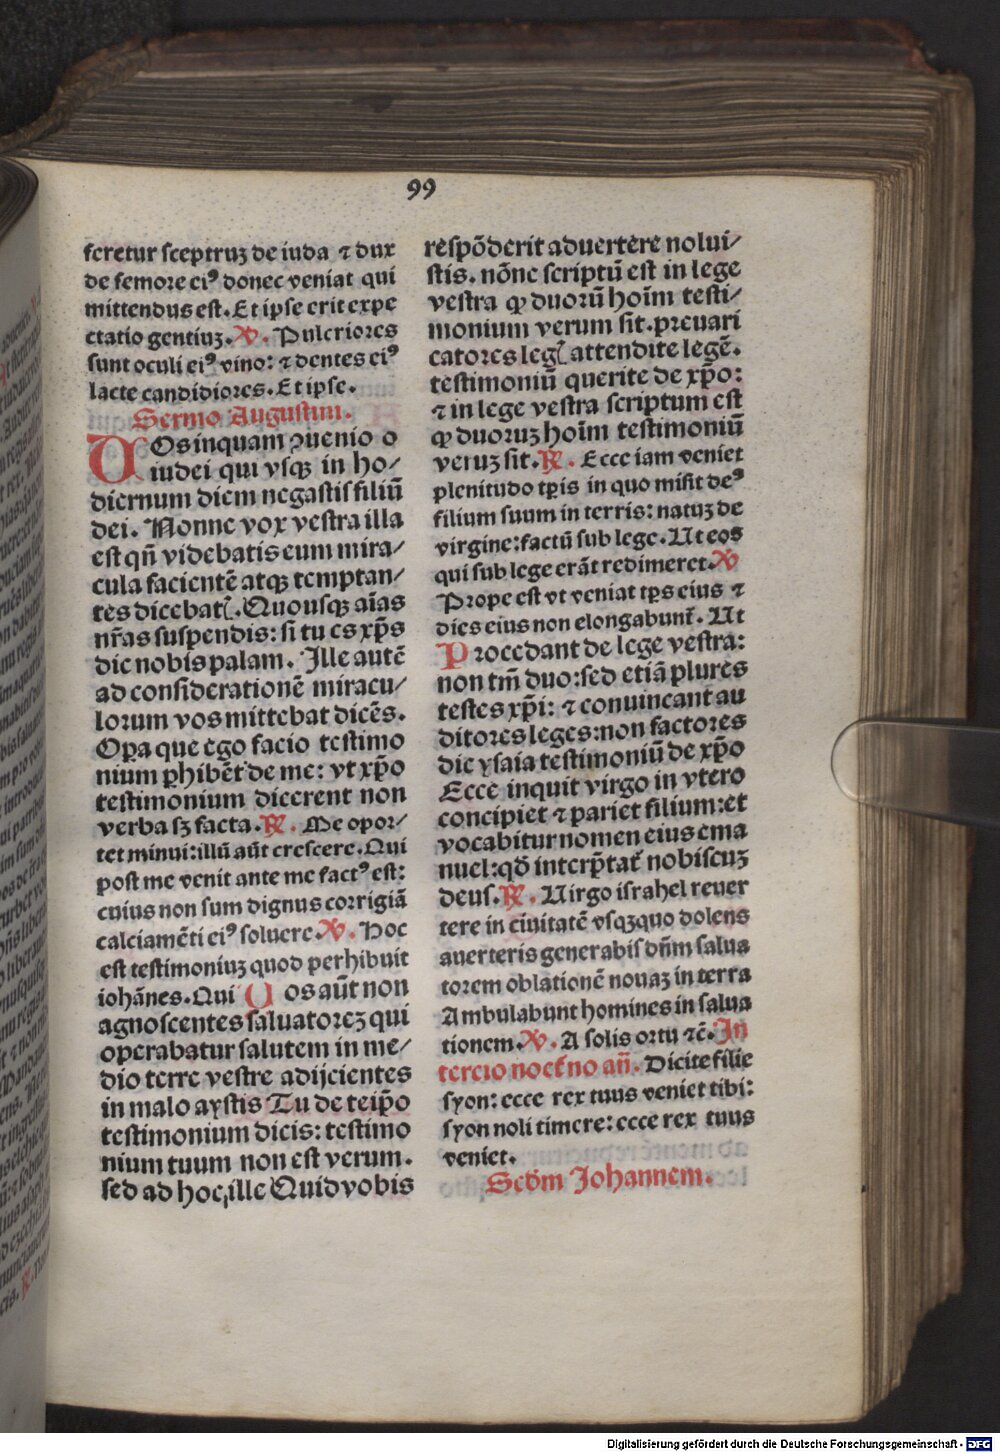 99
feretur sceptruꝫ de iuda ⁊ dux
de femore eiꝰ donec veniat qui
mittendus est. Et ipse erit expe
ctatio gentiuꝫ. ℣. Pulcriores
sunt oculi eiꝰ vino: ⁊ dentes eiꝰ
lacte candidiores. Et ipse.
Sermo Augustini.
VOs inquam ꝯuenio o
iudei qui vsqꝫ in ho/
diernum diem negastis filiū
dei. Nonne vox vestra illa
est qn̄ videbatis eum mira/
cula facientē atqꝫ temptan/
tes dicebatꝭ. Quousqꝫ aīas
nr̄as suspendis: si tu es xp̄s
dic nobis palam. Ille autē
ad considerationē miracu/
lorum vos mittebat dicēs.
Oꝑa que ego facio testimo
nium ꝑhibēt de me: vt xp̄o
testimonium dicerent non
verba sꝫ facta. ℟. Me opor/
tet minui: illū aūt crescere. Qui
post me venit ante me factꝰ est:
cuius non sum dignus corrigiā
calciamēti eiꝰ soluere. ℣. Hoc
est testimoniuꝫ quod perhibuit
iohānes. Qui Vos aūt non
agnoscentes saluatoreꝫ qui
operabatur salutem in me/
dio terre vestre adijcientes
in malo aystis Tu de teip̄o
testimonium dicis: testimo
nium tuum non est verum.
sed ad hoc ille Quid vobis
respōderit aduertere nolui/
stis. nōne scriptū est in lege
vestra ꝙ duorū hoīm testi/
monium verum sit. preuari
catores legꝭ attendite legē.
testimoniū querite de xp̄o:
⁊ in lege vestra scriptum est
ꝙ duoruꝫ hoīm testimoniū
veruꝫ sit. ℟. Ecce iam veniet
plenitudo tp̄is in quo misit deꝰ
filium suum in terris: natuꝫ de
virgine: factū sub lege. Ut eos
qui sub lege erāt redimeret. ℣
Prope est vt veniat tp̄s eius ⁊
dies eius non elongabunt᷑. Ut
Procedant de lege vestra:
non tm̄ duo: sed etiā plures
testes xp̄i: ⁊ conuincant au
ditores leges: non factores
dic ysaia testimoniū de xp̄o
Ecce inquit virgo in vtero
concipiet ⁊ pariet filium: et
vocabitur nomen eius ema
nuel: qd̄ interp̄tat᷑ nobiscuꝫ
deus. ℟. Virgo israhel reuer
tere in ciuitatē vsqꝫquo dolens
auerteris generabis dn̄m salua
torem oblationē nouaꝫ in terra
Ambulabunt homines in salua
tionem. ℣. A solis ortu ⁊ē. In
tercio noct᷑no an̄. Dicite filie
syon: ecce rex tuus veniet tibi:
syon noli timere: ecce rex tuus
veniet.
Scd̄m Johannem.
Digitalisierung gefördert durch die Deutsche Forschungsgemeinschaft - DFG